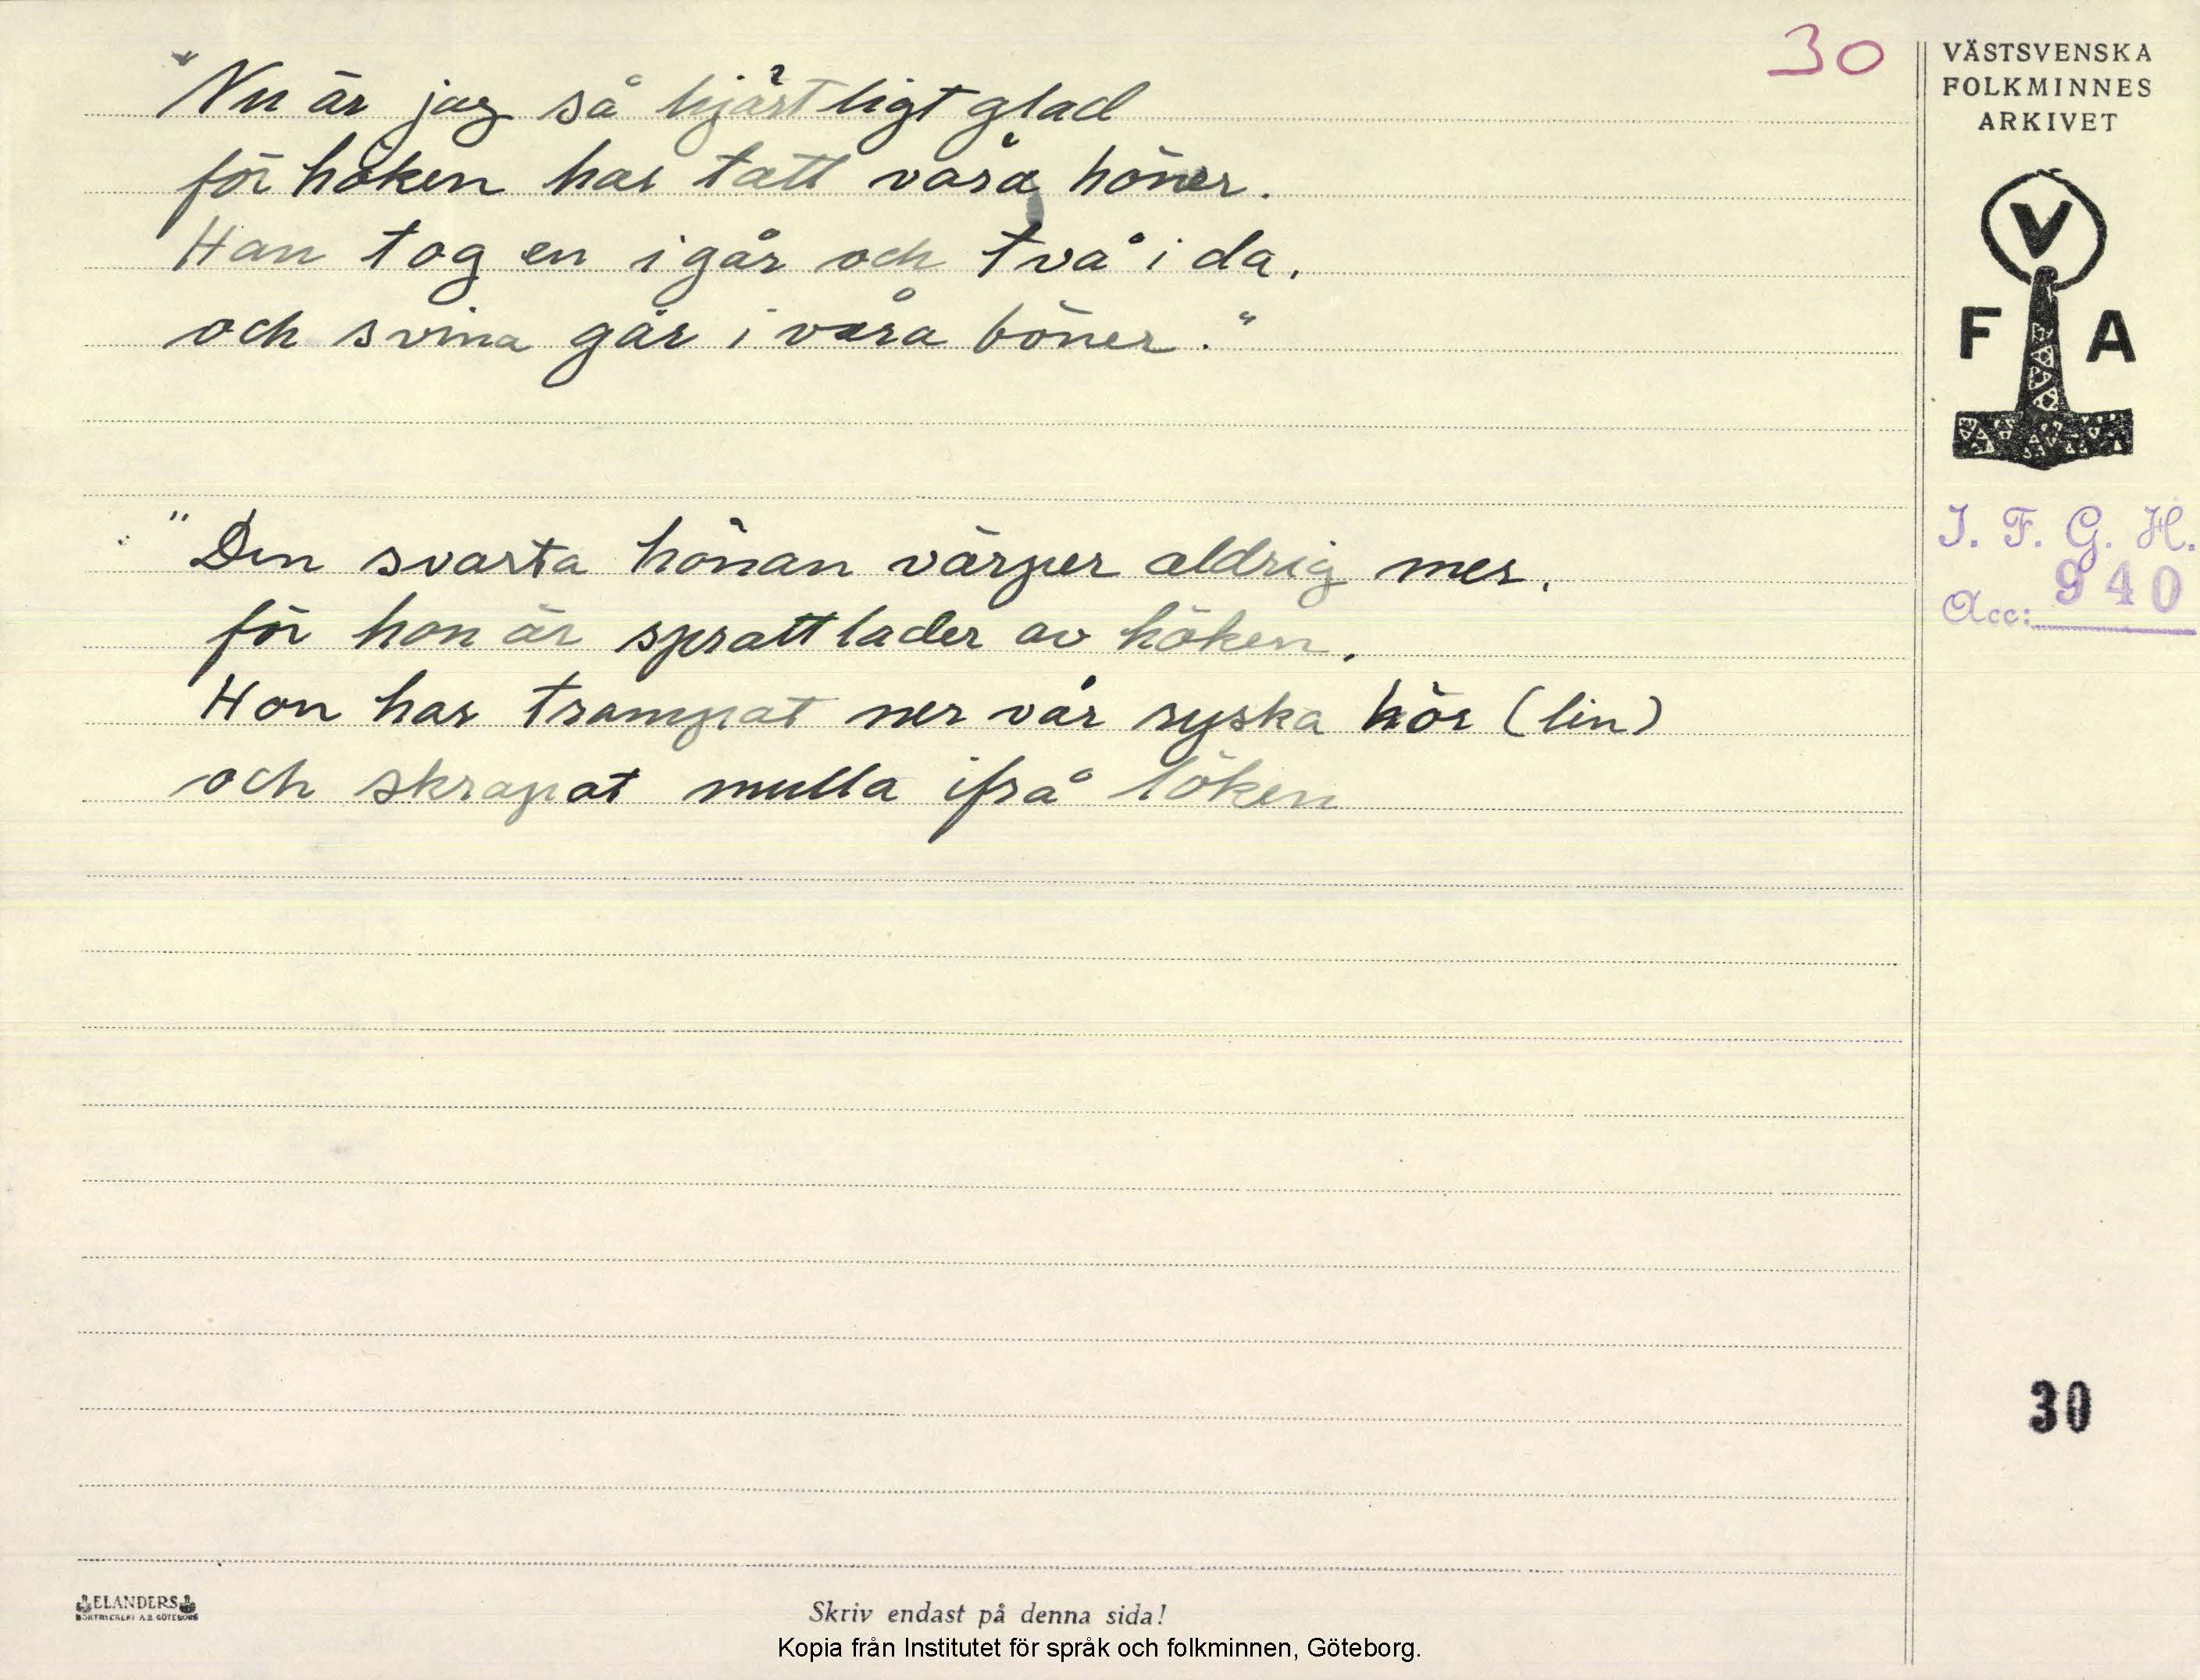 30
"Nu är jag så hjärtligt glad
för höken har tatt våra höner.
Han tog en igår och två i da,
och svina går i våra böner."
"Den svarta hönan värper aldrig mer,
för hon är sprattlader av höken,
Hon har trampat ner vår ryska hör (lin)
och skrapat mulla ifrå löken
VÄSTSVENSKA
FOLKMINNES
ARKIVET
V
F A
I. F. G. H.
Acc: 940
30
ELANDERS
BOKTRYCKERI A.B. GÖTEBORG
Skriv endast på denna sida!
Kopia från Institutet för språk och folkminnen, Göteborg.